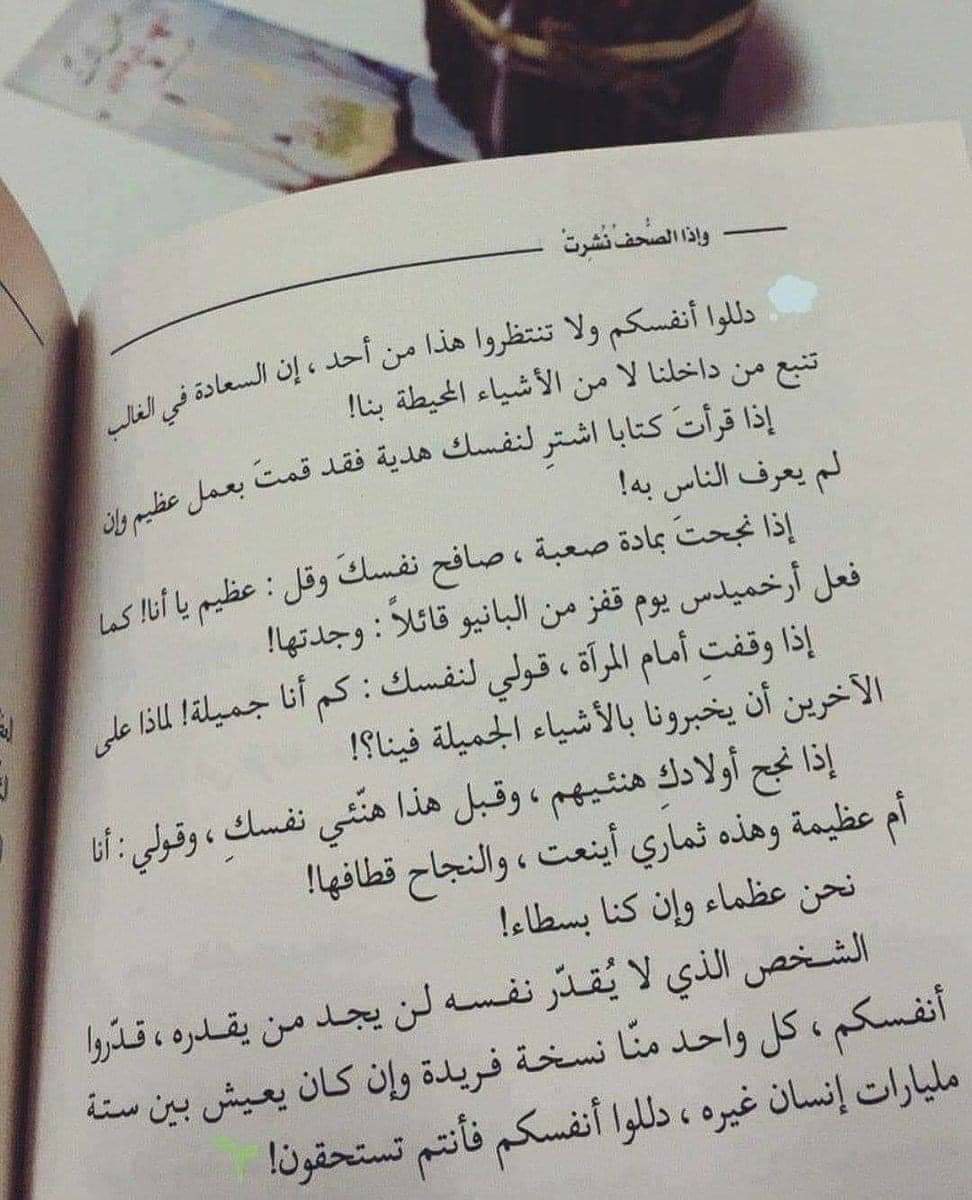 وإذا الصُّحفُ نُشِرتْ
دللوا أنفسكم ولا تنتظروا هذا من أحد ، إن السعادة في الغالب
تنبع من داخلنا لا من الأشياء المحيطة بنا!
إذا قرأتَ كتابا اشترِ لنفسك هدية فقد قمتَ بعمل عظيم وإن
لم يعرف الناس به!
إذا نجحتَ بمادة صعبة ، صافح نفسكَ وقل : عظيم يا أنا! كما
فعل أرخميدس يوم قفز من البانيو قائلاً : وجدتها!
إذا وقفتِ أمام المرآة ، قولي لنفسك : كم أنا جميلة! لماذا على
الآخرين أن يخبرونا بالأشياء الجميلة فينا؟!
إذا نجح أولادكِ هنئيهم ، وقبل هذا هنّئي نفسكِ ، وقولي : أنا
أم عظيمة وهذه ثماري أينعت ، والنجاح قطافها!
نحن عظماء وإن كنا بسطاء!
الشخص الذي لا يُقدّر نفسه لن يجد من يقدره ، قدّروا
أنفسكم ، كل واحد منّا نسخة فريدة وإن كان يعيش بين ستة
مليارات إنسان غيره ، دللوا أنفسكم فأنتم تستحقون!